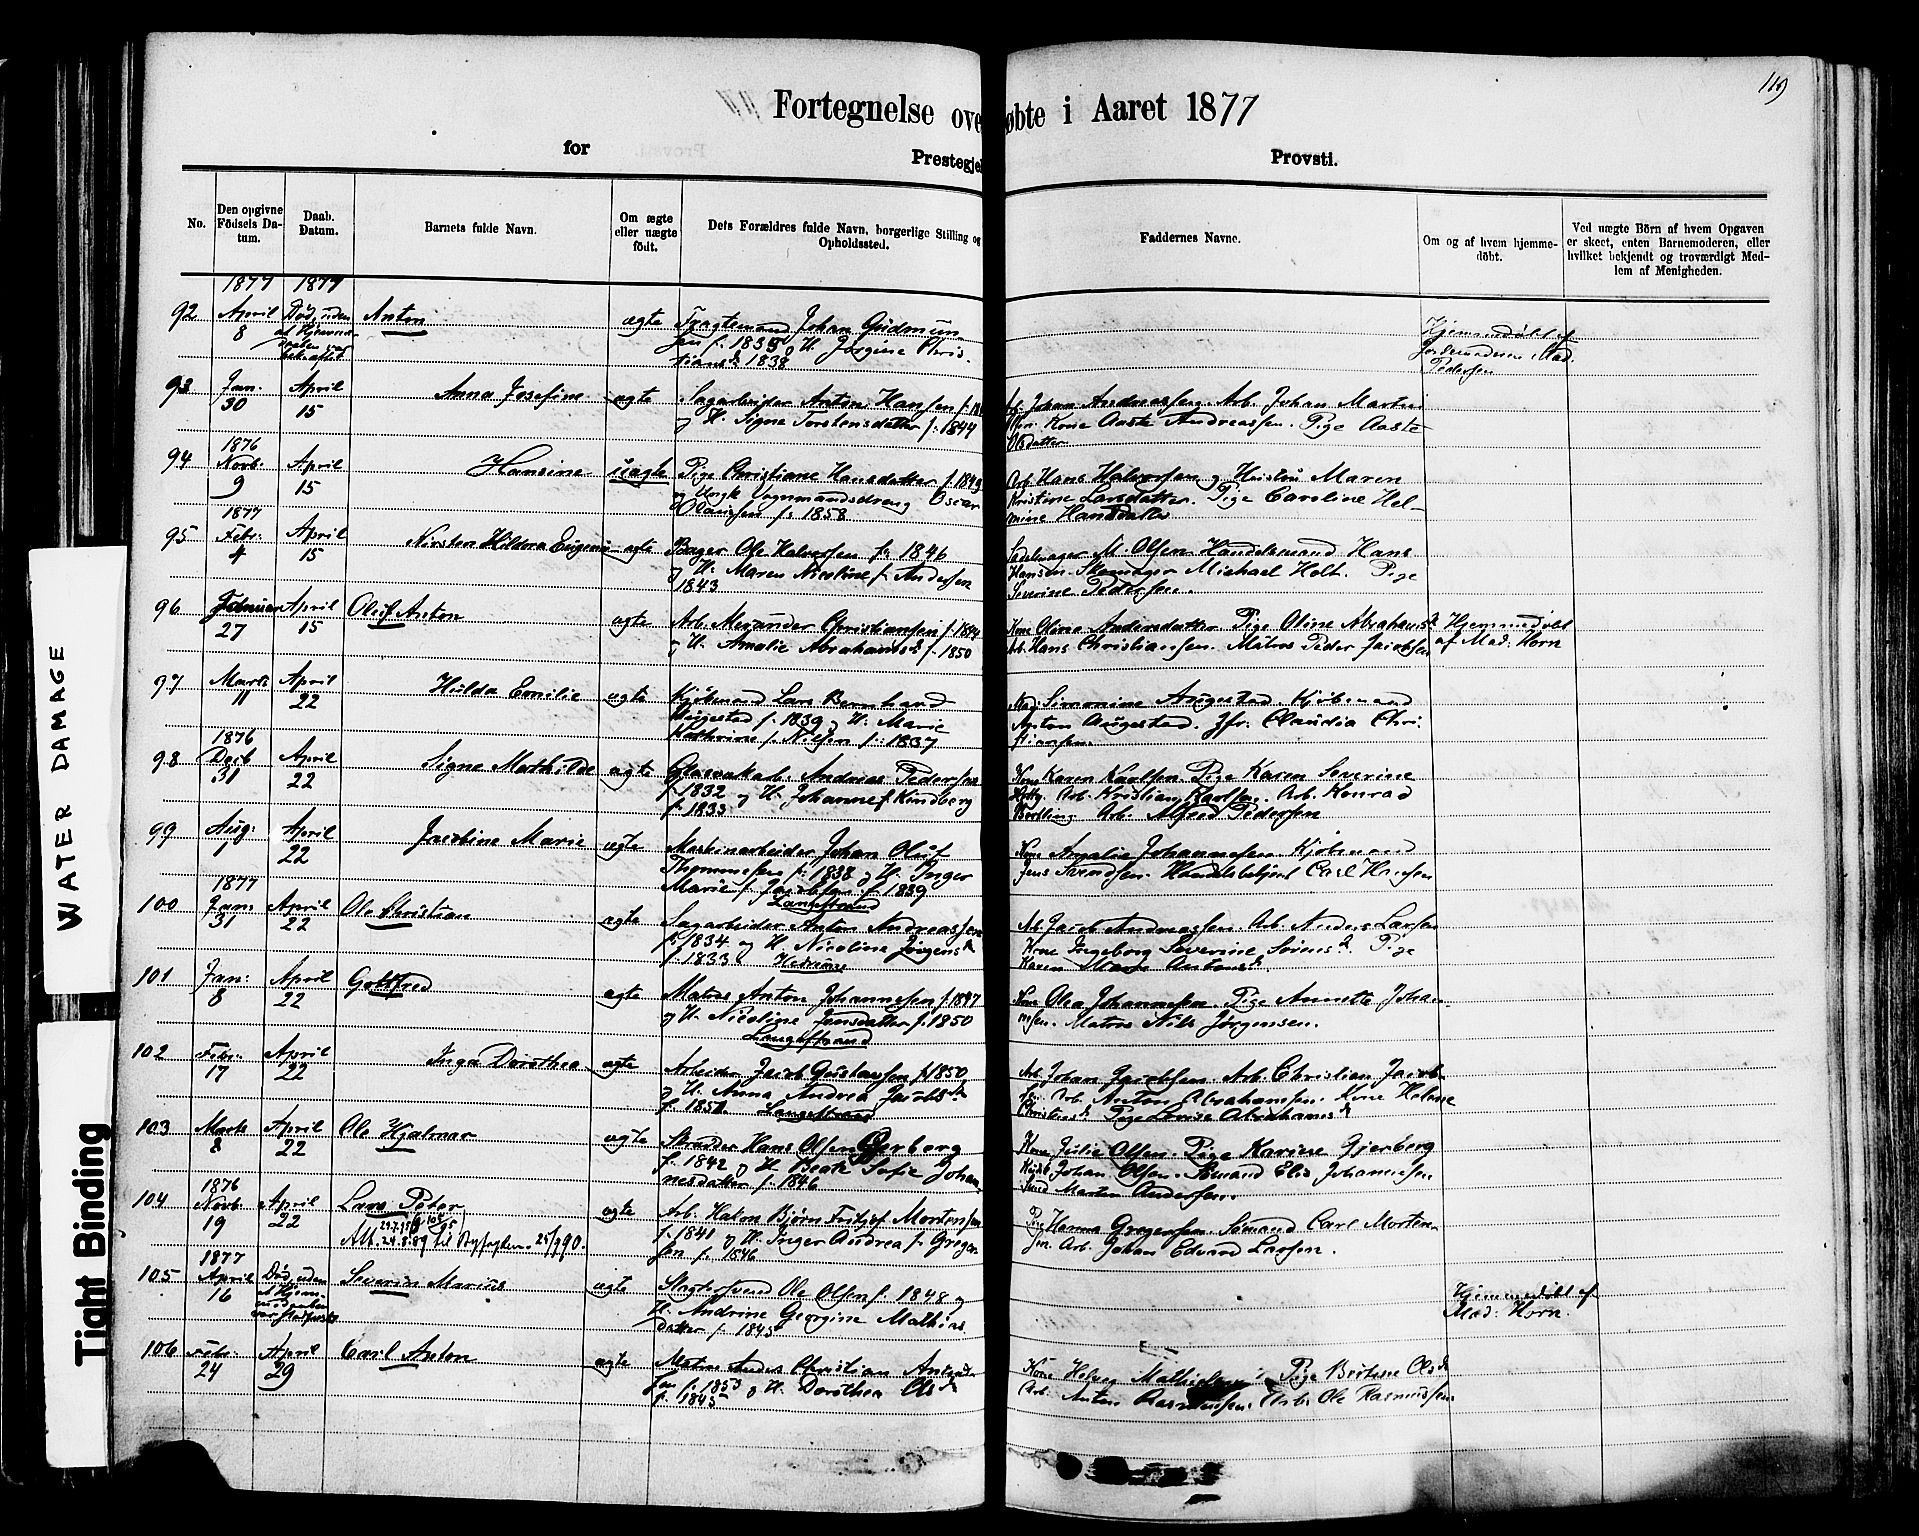 119
Fortegnelse ove
øbte i Aaret 1877
for
Prestegjel
Provsti.
No.
Den opgivne Födsels Da-
tum.
Daab.
Datum.
Barnets fulde Navn.
Om ægte
eller uægte
født.
Dets Forældres fulde Navn, borgerlige Stilling og
Opholdssted.
Faddernes Navne.
Om og af hvem hjemme-
döbt.
Ved uægte Börn af hvem Opgaven
er skeet, enten Barnemoderen, eller
hvilket bekjendt og troværdigt Med-
lem af Menigheden.
1877 1877
92 April 8 Død, uden Anton ægte Johan Gudmun
f. 1835 og H. Jørgine Chris
tiansd 1838
Hjemmedøbt af
Jordemoderen Mad.
Pedersen
93 Jan. 30 April 15 Anna Josefine ægte Sagarbeider Anton Hansen
og H. Signe Torstensdatter f. 1844
Arb. Johan Andreassen. Arb. Johan Martin
Kone Aaste Andreassen. Pige Aaste
Olsdatter
1876
94 Novb. 9 April 15 Hansine uægte Pige Christiane Hansdatter f. 1849
og Ungk. Oscar
f. 1858
Arb. Hans Halvorsen og Hustru Maren
Kristine Larsdatter. Pige Caroline Hel-
mine Hansdatter
1877
95 Febr. 4 April 15 Hildora Eugenie ægte Bager Ole Halvorsen f. 1846
og H. Maren Nicoline f. Andersen
1843
Sadelmager M. Olsen Handelsmand Hans
Hansen. Skomager Michael Holt. Pige
Severine Pedersen.
96 Februar 27 April 15 Oluf Anton ægte Arb. Christiansen
og H. Amalie Abrahamsd. f. 1850
Kone Oline Andersdatter. Pige Oline Abrahamsd.
Arb. Hans Christiansen. Matros Peder Jacobsen
Hjemmedøbt
af Mad. Horn
97 Marts 11 April 22 Hulda Emilie ægte Kjøbmand Lars Bernhard
Augestad f. 1839 og H. Marie
Kathrine f. Nilsen f. 1837
Mad. Simonine Augestad. Kjøbmand
Anton Augestad. Jfr. Claudia Chri
stiansen.
1876
98 Decb 31 April 22 Signe Mathilde ægte Andreas Pedersen
f. 1832 og H. Johanne f. Kindberg
f. 1833
Kone Karen Karlsen. Pige Karen Severine
Arb. Kristian Karlsen. Arb. Konrad
Arb. Alfred Pedersen
99 Aug. 1 April 22 Jacobine Marie ægte Maskinarbeider Johan Oluf
Thommesen f. 1838 og H. Inger
Marie f. Jacobsen f. 1839
Langestrand
Kone Amalie Johannesen Kjøbmand
Jens Handelsbetjent Carl Hansen
1877
100 Jan. 31 April 22 Ole Christian ægte Sagarbeider Anton Andreassen
f. 1834 og H. Nicoline Jørgensd
f. 1833 Hedrum
Arb. Jacob Andreassen. Arb. Anders Larsen
Kone Ingeborg Severine Sørensd. Pige
Karen Antonsd.
101 Jan. 8 April 22 Gottfred ægte Matros Anton Johannesen f. 1847
og H. Nicoline Jensdatter f. 1850
Langestrand
Kone Olea Johannesen. Pige Annette Johan
nesen. Matros Nils Jørgensen.
102 Febr. 17 April 22 Inga Dorothea ægte Arbeider Jacob Gustavsen f. 1850
og H. Anna Andrea Jacobsd.
Langestrand
Arb. Johan Jacobsen. Arb. Christian Jacob
sen Arb. Anton Abrahamsen. Kone Helene
Pige Lovise Abrahamsd
103 Marts 8 April 22 Ole Hjalmar ægte Skrædder Hans Olsen Gjerberg
f. 1842 og H. Beate Sofie Johan
nesdatter f. 1846
Kone Julie Olsen. Pige Karine Gjerberg
Johan Olsen. Sømand Elis Johannesen
Martin Andersen.
1876
104 Novb. 19 April 22 Lars Peter ægte Arb. Hakon Bjørn Fritjof Mortensen
Att. 24.8.89 til Byfogden. 25/9 90.
f. 1841 og H. Inger Andrea f. Greger
sen f. 1846
Pige Hanna Gregersen. Sømand Carl Morten
sen. Arb. Johan Edvard Larsen.
1877
105 April 16 Død uden Severin Marius ægte Slagtersvend Ole Olsen f. 1848 og
H. Andrine Georgine Mathias
datter f. 1845
Hjemmedøbt af
Mad: Horn.
106 Febr. 24 April 29 Carl Anton ægte Matros Anders Christian
f. 1853 og H. Dorothea Olsd
f. 1845
Kone Helveg Pige Bertine Olsd
Arb. Anton Rasmussen. Arb. Ole Rasmussen
WATER DAMAGE
Tight Binding